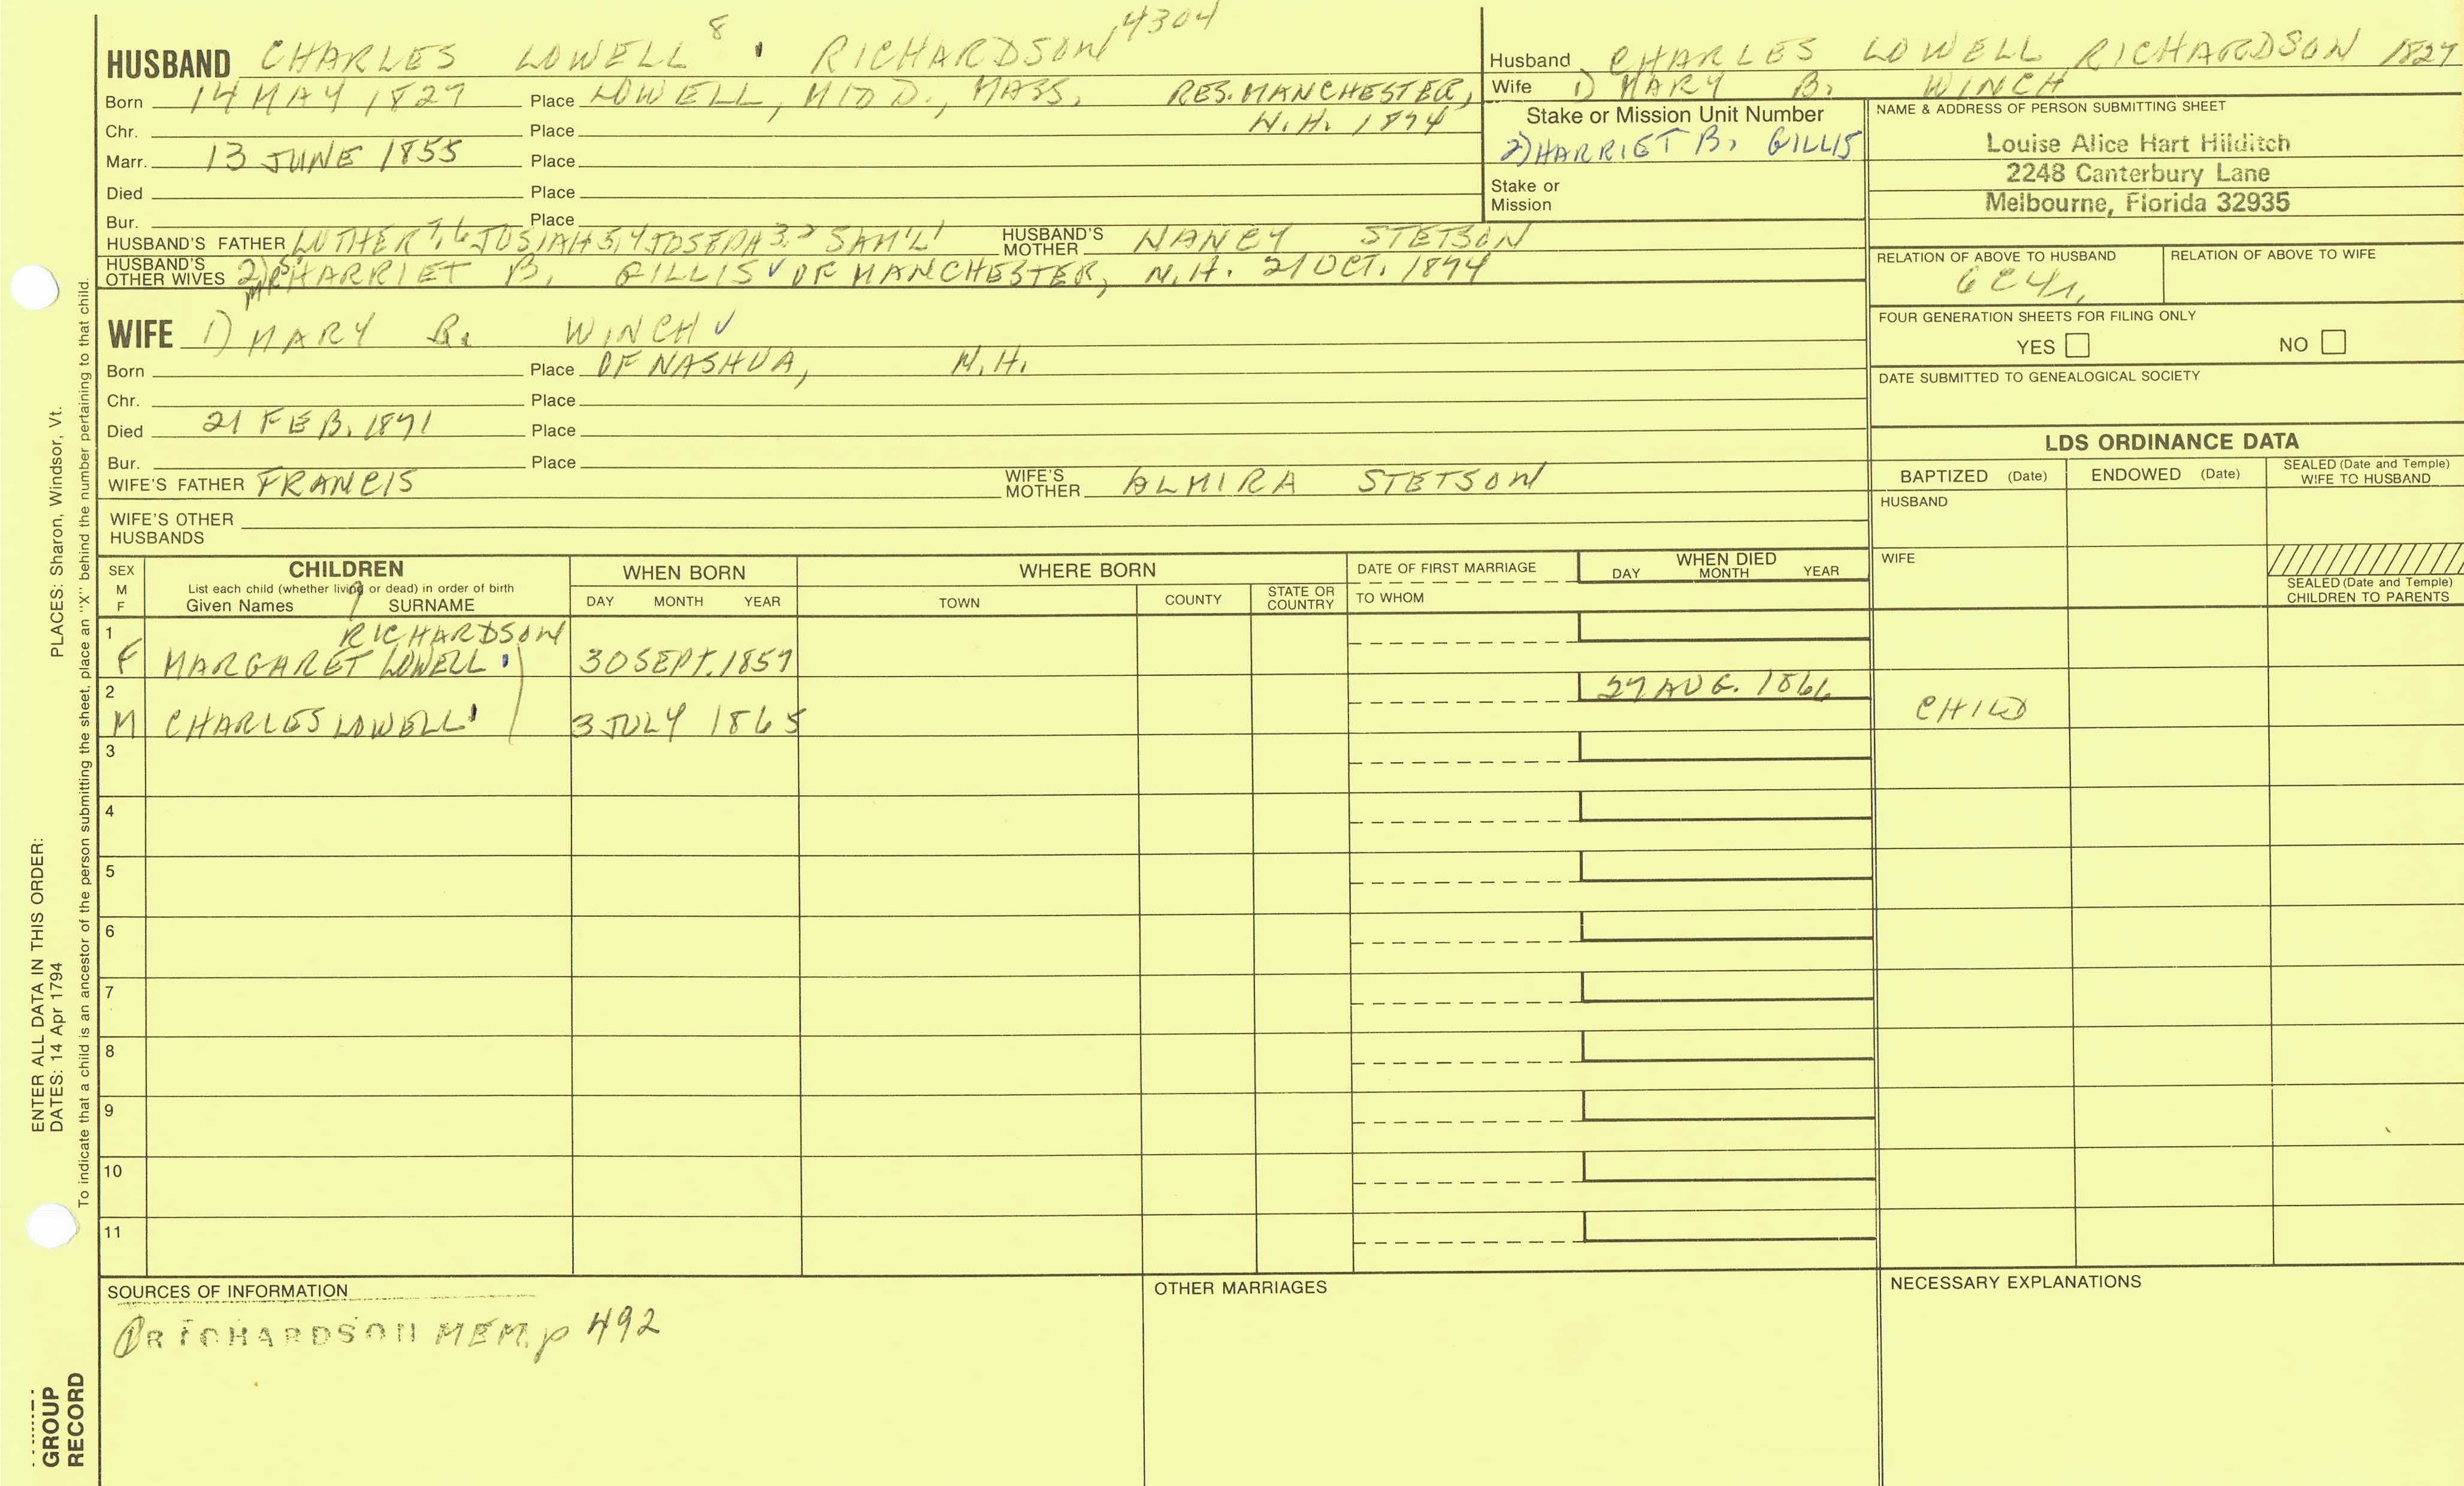 HUSBAND CHARLES LOWELL 8 RICHARDSON 4304
Born 14 MAY 1827 Place LOWELL, MIDD., MASS. RES. MANCHESTER,
N.H. 1894
Chr. Place
Marr. 13 JUNE 1855 Place
Died Place
Bur. Place
HUSBAND'S FATHER LUTHER 7,6 JOSIAH 5,4 JOSEPH 3,2 SAM'L 1 HUSBAND'S MOTHER NANCY STETSON
HUSBAND'S OTHER WIVES 2) MRS HARRIET B. GILLIS ✓ OF MANCHESTER, N.H. 21 OCT. 1894
WIFE 1) MARY B. WINCH ✓
Born Place OF NASHUA, N.H.
Chr. Place
Died 21 FEB. 1891 Place
Bur. Place
WIFE'S FATHER FRANCIS WIFE'S MOTHER ALMIRA STETSON
WIFE'S OTHER HUSBANDS
Husband CHARLES LOWELL RICHARDSON 1827
Wife 1) MARY B. WINCH
Stake or Mission Unit Number
2) HARRIET B. GILLIS
Stake or
Mission
NAME & ADDRESS OF PERSON SUBMITTING SHEET
Louise Alice Hart Hilditch
2248 Canterbury Lane
Melbourne, Florida 32935
RELATION OF ABOVE TO HUSBAND RELATION OF ABOVE TO WIFE
6C4r.
FOUR GENERATION SHEETS FOR FILING ONLY
YES NO
DATE SUBMITTED TO GENEALOGICAL SOCIETY
LDS ORDINANCE DATA
BAPTIZED (Date) ENDOWED (Date) SEALED (Date and Temple) WIFE TO HUSBAND
HUSBAND
WIFE
SEALED (Date and Temple)
CHILDREN TO PARENTS
SEX M F CHILDREN WHEN BORN WHERE BORN DATE OF FIRST MARRIAGE WHEN DIED
List each child (whether living or dead) in order of birth
9
Given Names SURNAME DAY MONTH YEAR TOWN COUNTY STATE OR COUNTRY TO WHOM DAY MONTH YEAR
1 RICHARDSON
F MARGARET LOWELL 30 SEPT. 1857
2 27 AUG. 1866
M CHARLES LOWELL 3 JULY 1865 CHILD
3
4
5
6
7
8
9
10
11
SOURCES OF INFORMATION OTHER MARRIAGES NECESSARY EXPLANATIONS
① RICHARDSON MEM. p 492
PLACES: Sharon, Windsor, Vt.
To indicate that a child is an ancestor of the person submitting the sheet, place an "X" behind the number pertaining to that child.
ENTER ALL DATA IN THIS ORDER:
DATES: 14 Apr 1794
GROUP
RECORD